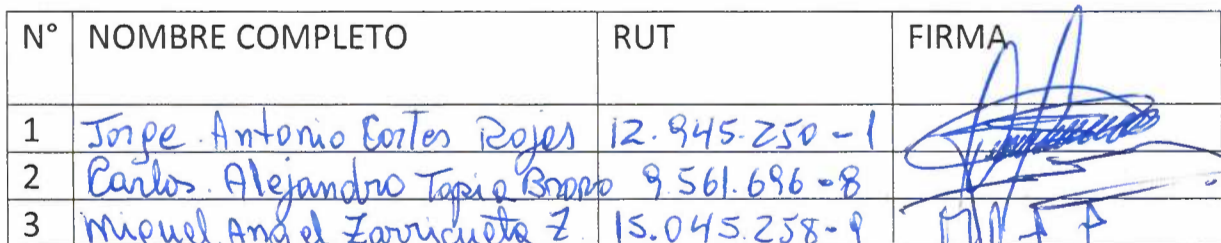 N° NOMBRE COMPLETO RUT FIRMA
1 Jorge Antonio Cortes Rojas 12.945.250-1
2 Carlos Alejandro Tapia Bravo 9.561.696-8
3 Miguel Angel Zarricueta Z. 15.045.258-9